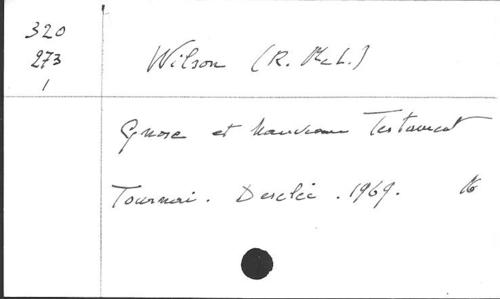 320
273
1
Wilson (R. McL.)
Gnose et Nouveau Testament
Tournai. Desclée. 1969.